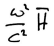 \frac{\omega^2}{c^2} \overline{H}